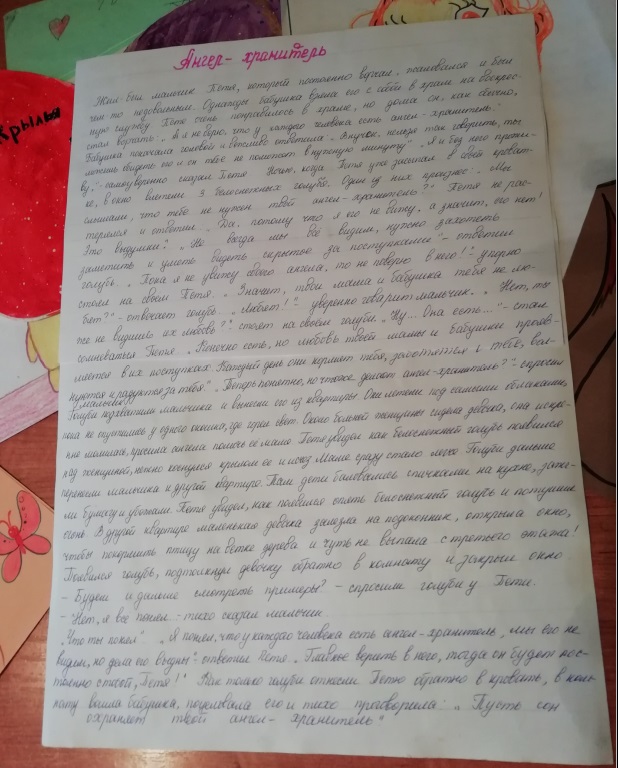 Крылья
Ангел-хранитель
Жил-был мальчик Петя, который постоянно ворчал, жаловался и был
чем-то недовольным. Однажды бабушка взяла его с собой в храм на воскрес-
ную службу. Пете очень понравилось в храме, но дома он, как обычно,
стал ворчать: „А я не верю, что у каждого человека есть ангел-хранитель."
Бабушка покачала головой и ответила: „Внучек, нельзя так говорить, ты
можешь обидеть его и он тебе не поможет в нужную минуту". „Я и без него прожи-
ву." - самоуверенно сказал Петя. Ночью, когда Петя уже засыпал в своей кроват-
ке, в окно влетели 3 белоснежных голубя. Один из них произнес: „Мы
слышали, что тебе не нужен твой ангел-хранитель?" Петя не рас-
терялся и ответил: „Да, потому что я его не вижу, а значит, его нет!
Это выдумки!" „Не всегда мы всё видим, нужно захотеть
заметить и уметь видеть скрытое за поступками" - ответил
голубь. „Пока я не увижу своего ангела, то не поверю в него!" - упорно
стоял на своём Петя. „Значит, твои мама и бабушка тебя не лю-
бят?" - отвечает голубь. „Любят!" - уверенно говорит мальчик. „Нет, ты
же не видишь их любовь?" стоят на своём голуби. „Ну... Она есть..." - стал
сомневаться Петя. „Конечно есть, но любовь твоей мамы и бабушки прояв-
ляется в их поступках. Каждый день они кормят тебя, заботятся о тебе, вол-
нуются и радуются за тебя". „Теперь понятно, но что же делает ангел-хранитель?" - спросил
мальчик.
Голуби подхватили мальчика и вынесли его из квартиры. Они летели под самыми облаками,
пока не опустились у одного окошка, где горел свет. Около больной женщины сидела девочка, она искре-
нне молилась, просила ангела помочь её маме. Петя увидел как белоснежный голубь появился
над женщиной, нежно коснулся крылом её и исчез. Маме сразу стало легче. Голуби дальше
перенесли мальчика к другой квартире. Там дети баловались спичками на кухне, зажг-
ли бумагу и убежали. Петя увидел, как появился опять белоснежный голубь и потушил
огонь. В другой квартире маленькая девочка залезла на подоконник, открыла окно,
чтобы покормить птицу на ветке дерева и чуть не выпала с третьего этажа!
Появился голубь, подтолкнул девочку обратно в комнату и закрыл окно.
- Будем и дальше смотреть примеры? - спросили голуби у Пети.
- Нет, я всё понял. - тихо сказал мальчик.
„Что ты понял". „Я понял, что у каждого человека есть ангел-хранитель, мы его не
видим, но дела его видны" - ответил Петя. „Главное верить в него, тогда он будет пос-
тоянно с тобой, Петя!" Как только голуби отнесли Петю обратно в кровать, в ком-
нату вошла бабушка, поцеловала его и тихо проговорила: „Пусть сон
охраняет твой ангел-хранитель"